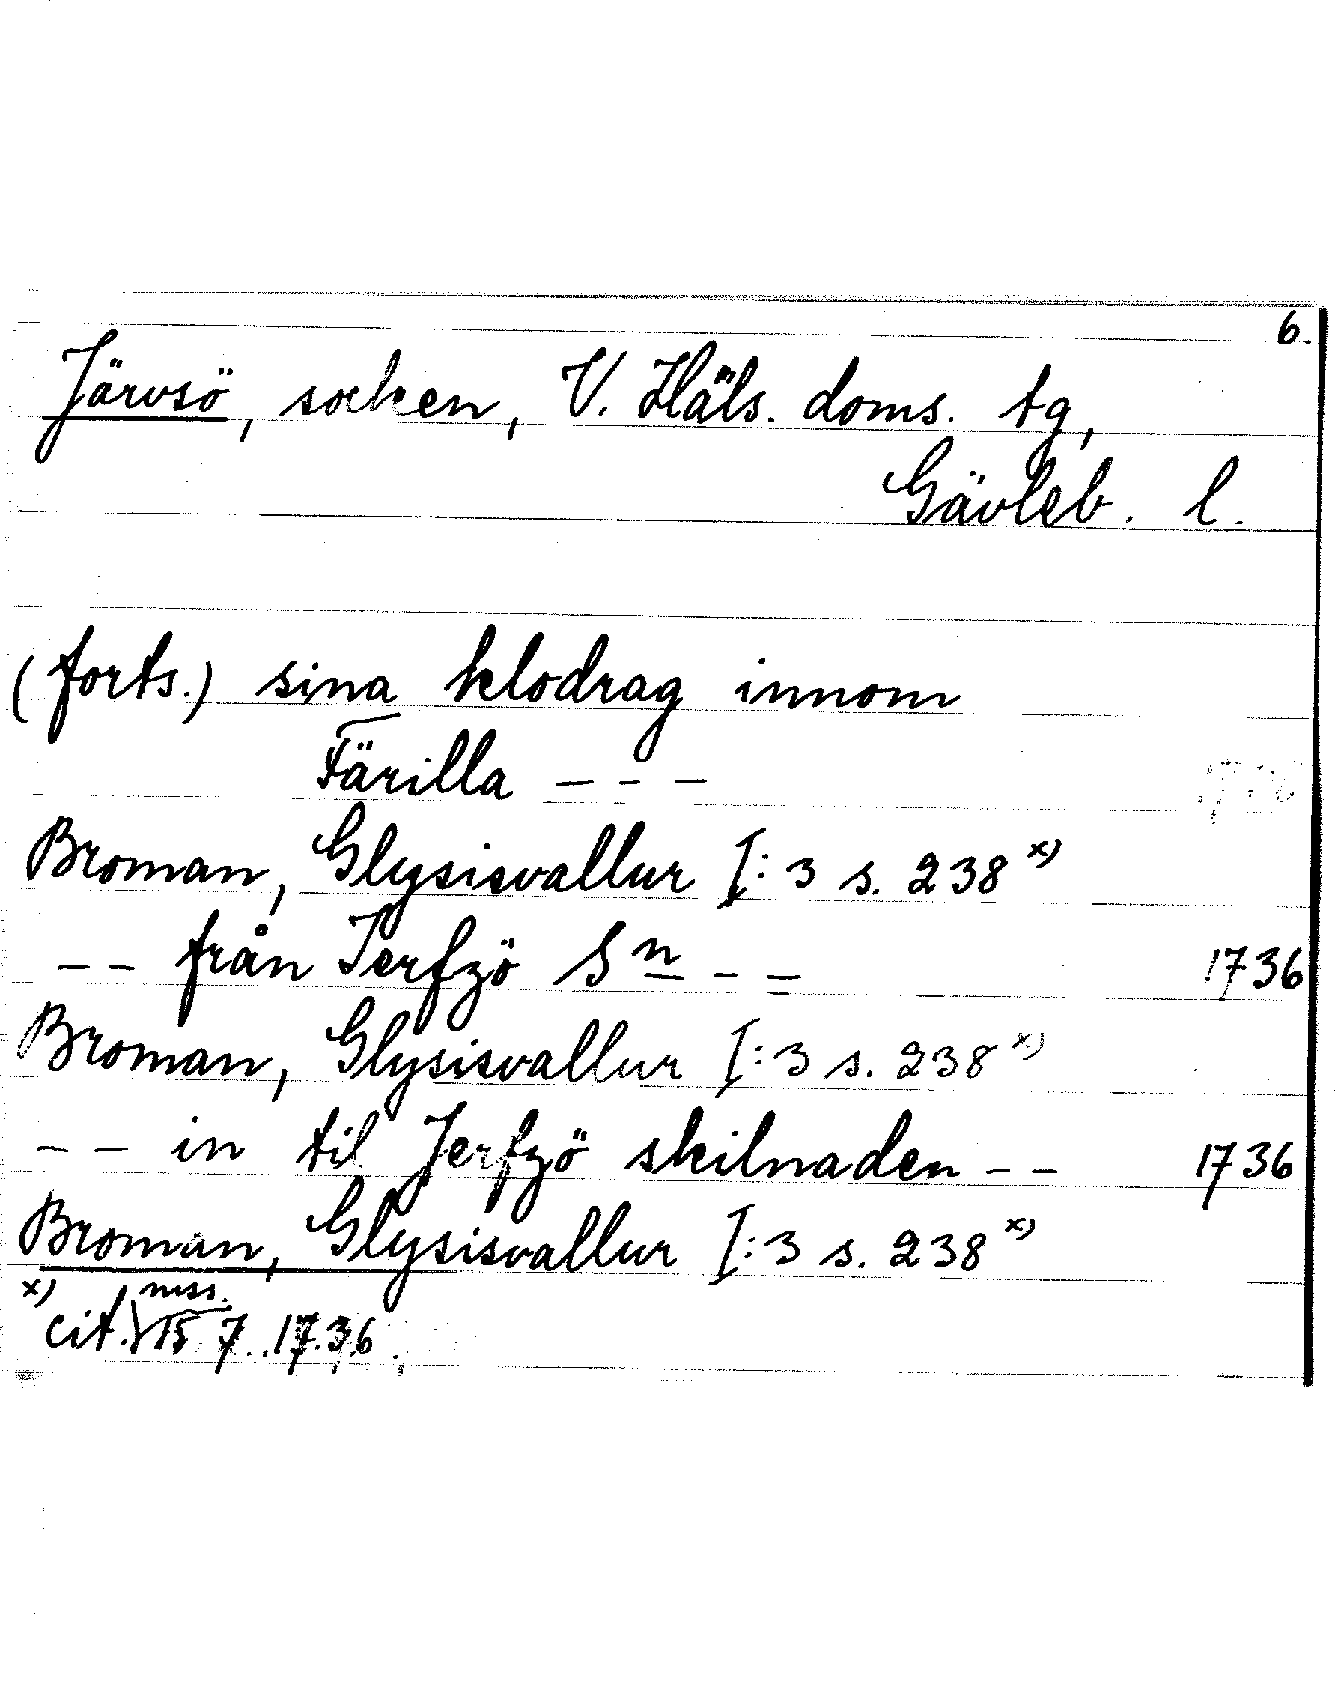 6.
Järvsö, socken, V. Häls. doms. tg,
Gävleb. l.
(forts.) sina klodrag innom
Färilla - - -
Broman, Glysisvallur I:3 s. 238 x)
-- från Jerfzö Sn - - 1736
Broman, Glysisvallur I:3 s. 238 x)
-- in til Jerfzö skilnaden -- 1736
Broman, Glysisvallur I:3 s. 238 x)
x) mss.
cit. 15 7 1736.